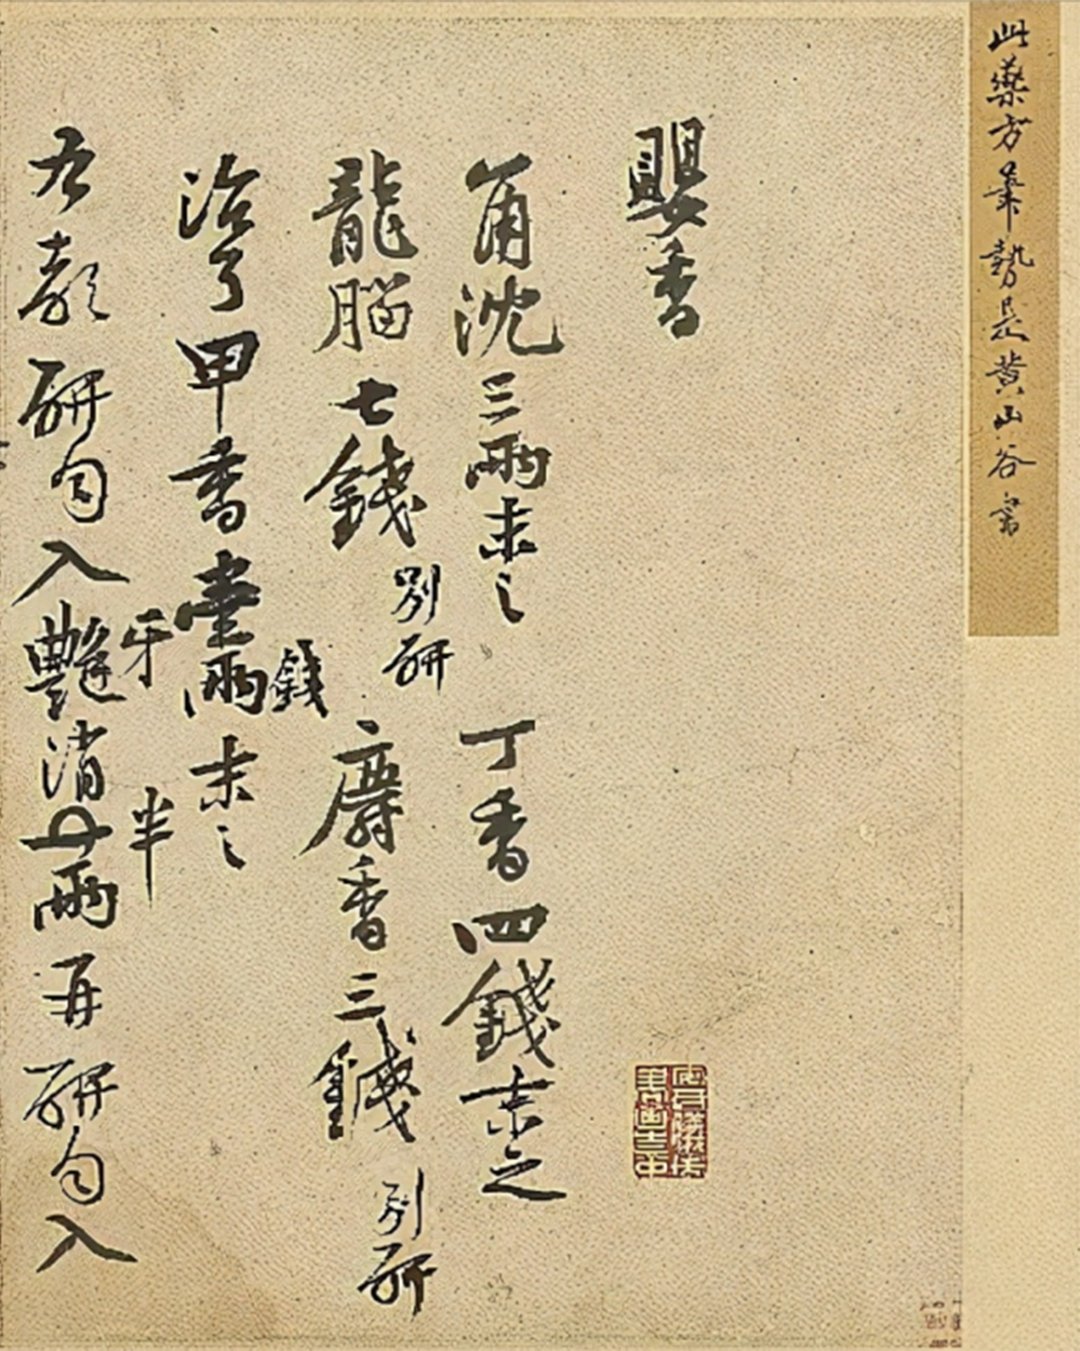 此藥方筆勢是黃山谷書
嬰香
角沈三兩末之 丁香四錢末之
龍腦七錢別研 麝香三錢別研
治了甲香壹兩錢末之
右都研勻入艷消半兩再研勻入
牙
半